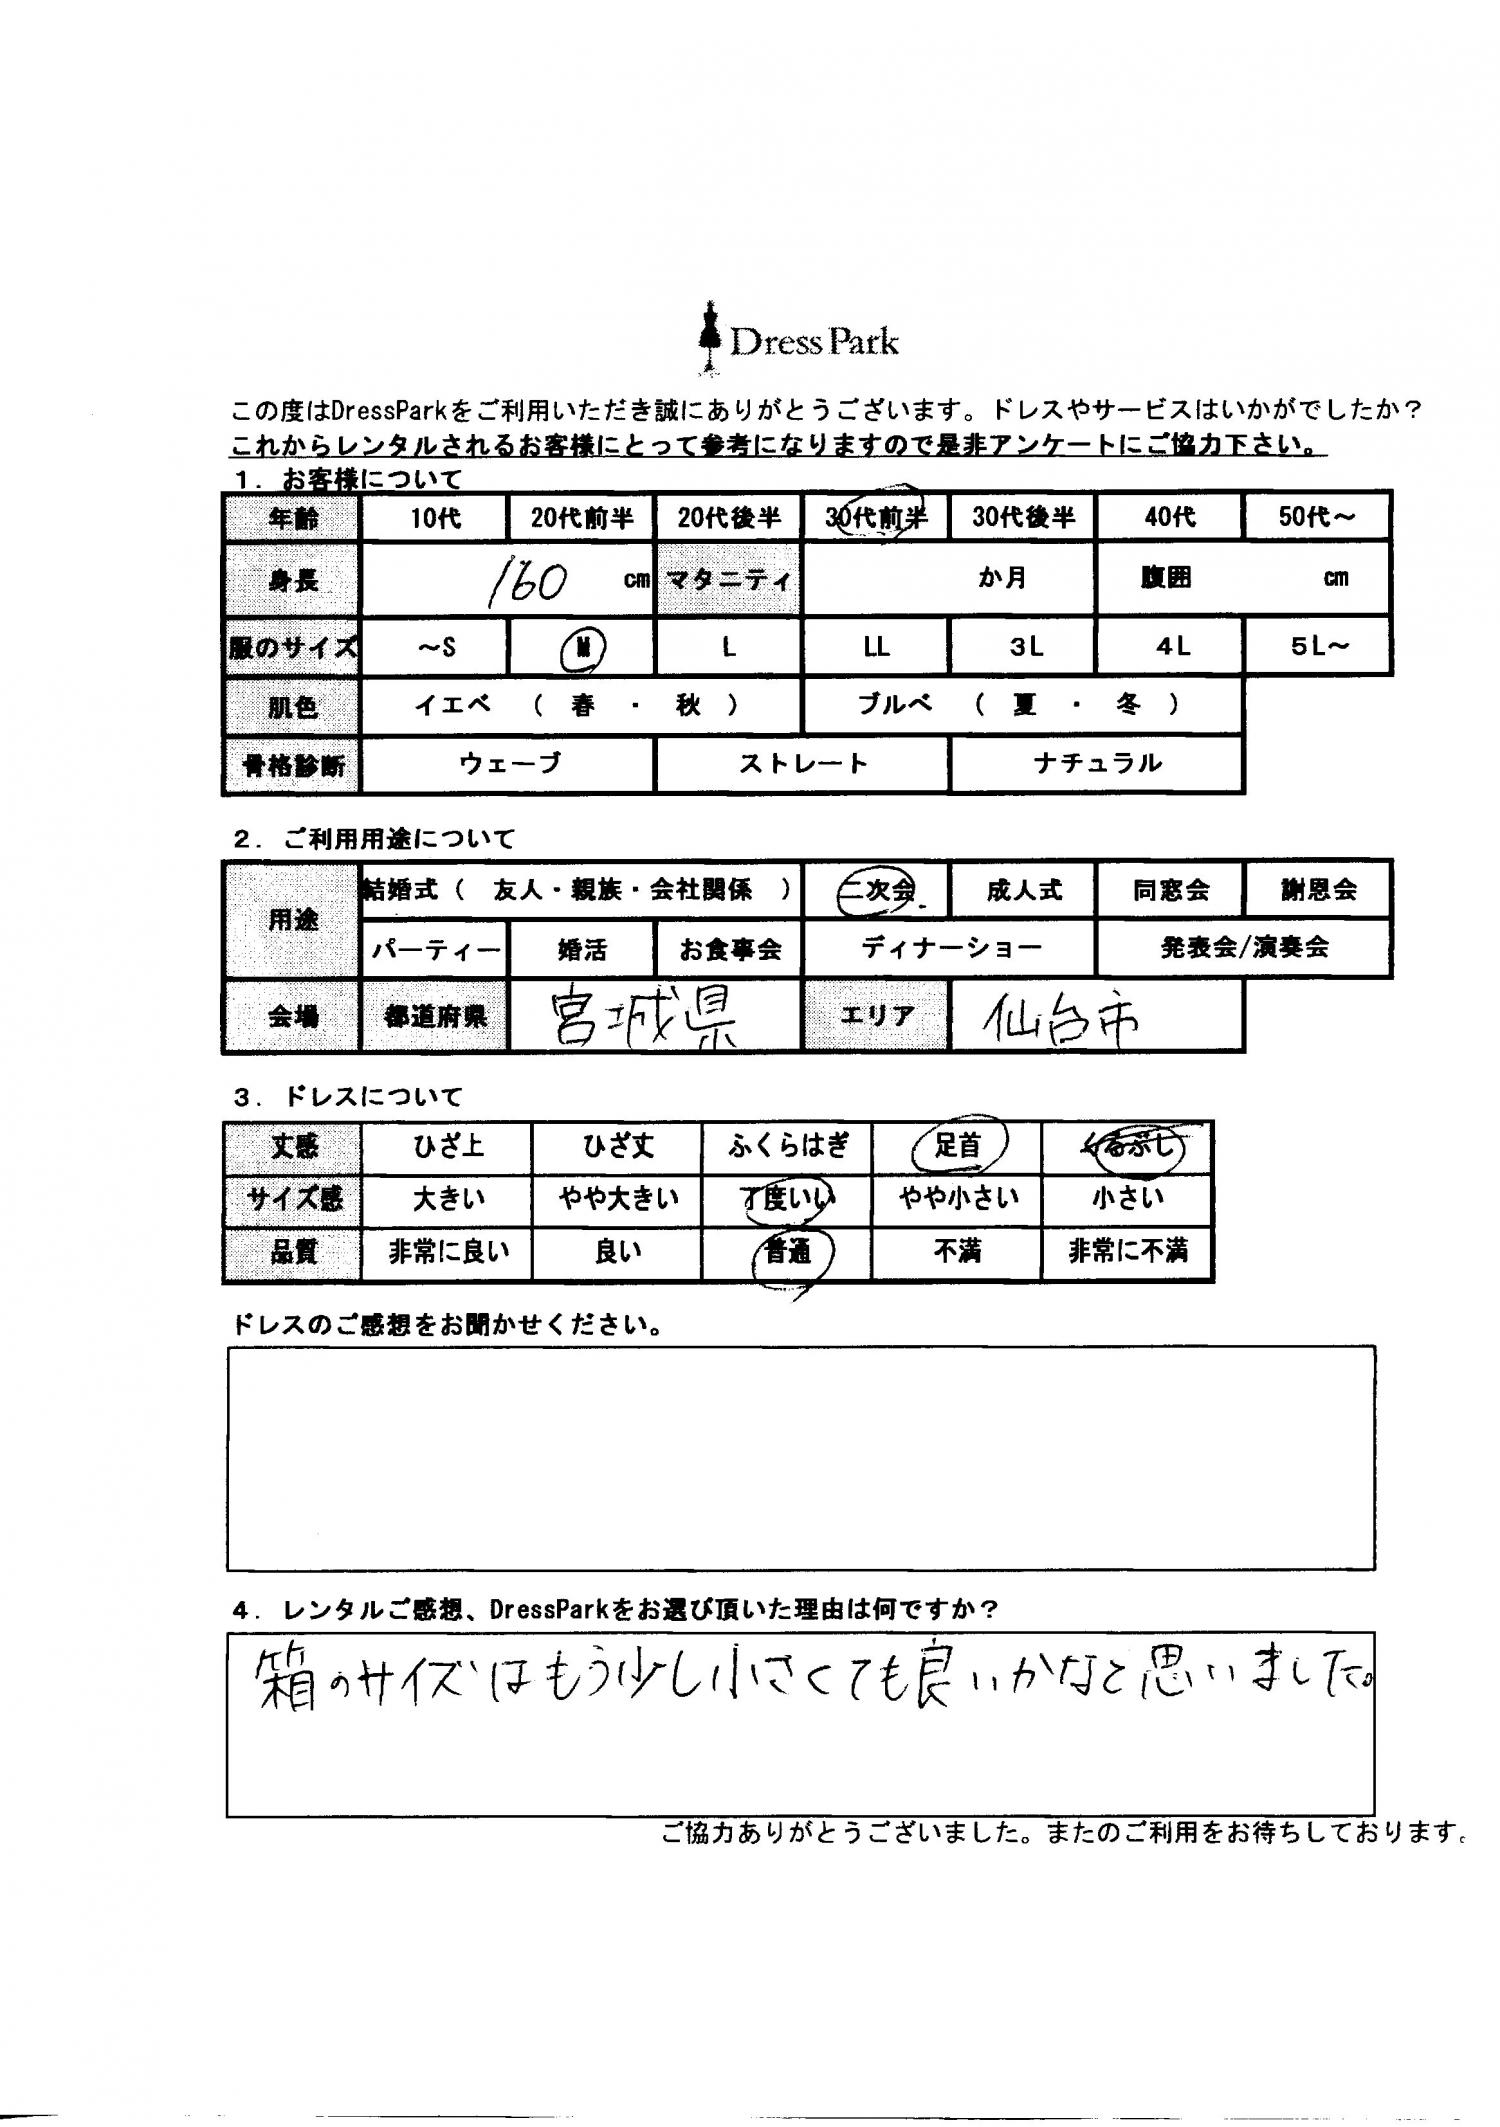 Dress Park
この度はDressParkをご利用いただき誠にありがとうございます。ドレスやサービスはいかがでしたか？
これからレンタルされるお客様にとって参考になりますので是非アンケートにご協力下さい。
1. お客様について
年齢 10代 20代前半 20代後半 30代前半 30代後半 40代 50代～
身長 160 cm マタニティ か月 腹囲 cm
服のサイズ ～S M L LL 3L 4L 5L～
肌色 イエベ （ 春 ・ 秋 ） ブルベ （ 夏 ・ 冬 ）
骨格診断 ウェーブ ストレート ナチュラル
2. ご利用用途について
用途 結婚式（ 友人・親族・会社関係 ） 二次会 成人式 同窓会 謝恩会
パーティー 婚活 お食事会 ディナーショー 発表会/演奏会
会場 都道府県 宮城県 エリア 仙台市
3. ドレスについて
丈感 ひざ上 ひざ丈 ふくらはぎ 足首 くるぶし
サイズ感 大きい やや大きい 丁度いい やや小さい 小さい
品質 非常に良い 良い 普通 不満 非常に不満
ドレスのご感想をお聞かせください。
4. レンタルご感想、DressParkをお選び頂いた理由は何ですか？
箱のサイズはもう少し小さくても良いかなと思いました。
ご協力ありがとうございました。またのご利用をお待ちしております。